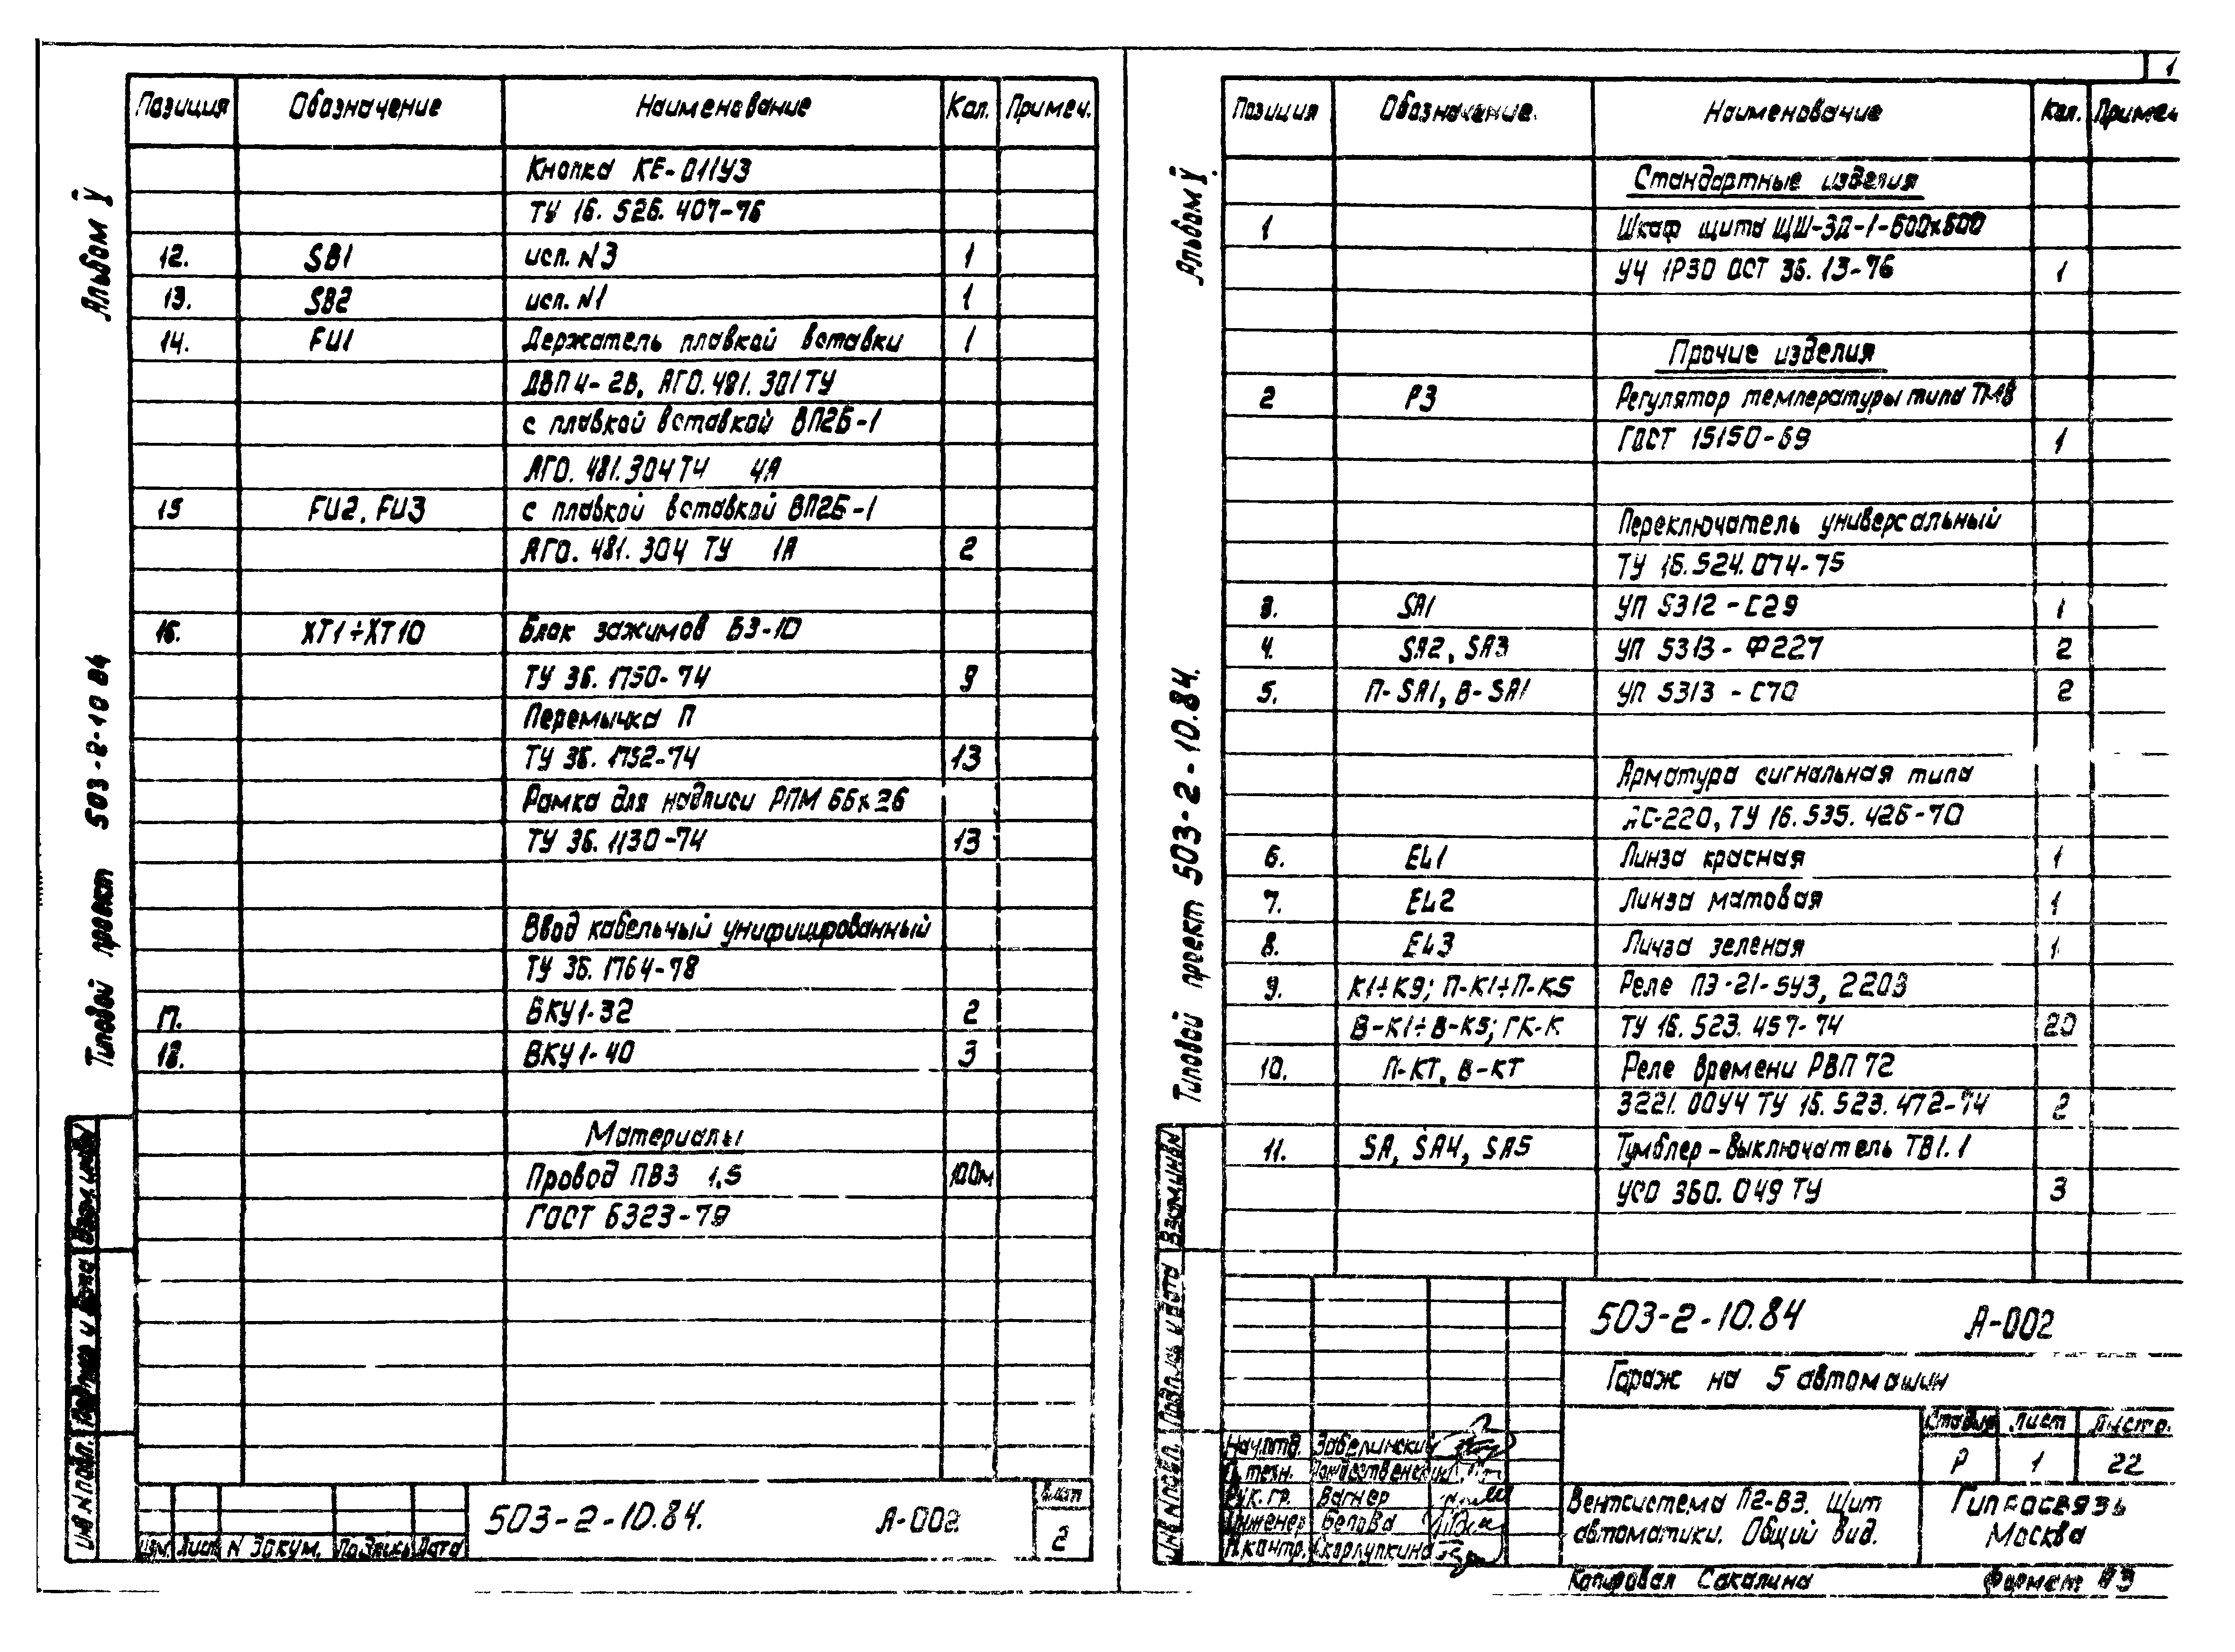 Позиция Обозначение Наименование Кол. Примеч.
Кнопка КЕ-011У3
ТУ 16.526.407-76
12. SB1 исп. N3 1
13. SB2 исп. N1 1
14. FU1 Держатель плавкой вставки 1
ДВП4-2В, АГО.481.301ТУ
с плавкой вставкой ВП2Б-1
АГО.481.304ТУ 4А
15 FU2, FU3 с плавкой вставкой ВП2Б-1
АГО.481.304 ТУ 1А 2
16. ХТ1÷ХТ10 Блок зажимов БЗ-10
ТУ 36.1750-74 9
Перемычка П
ТУ 36.1752-74 13
Рамка для надписи РПМ 66х26
ТУ 36.1130-74 13
Ввод кабельный унифицированный
ТУ 36.1764-78
17. ВКУ1-32 2
18. ВКУ1-40 3
Материалы
Провод ПВ3 1,5 100м
ГОСТ 6323-79
Альбом V
Типовой проект 503-2-10 84
Инв N подл. Подпись и дата Взам.инв N
Изм. Лист N докум. Подпись Дата
503-2-10.84. А-002
Лист
2
1
Позиция Обозначение Наименование Кол. Примеч
Стандартные изделия
1 Шкаф щита ЩШ-ЗД-1-600х600
У4 1Р30 ОСТ 36.13-76 1
Прочие изделия
2 Р3 Регулятор температуры типа ТМ8
ГОСТ 15150-69 1
Переключатель универсальный
ТУ 16.524.074-75
3. SA1 УП 5312-С29 1
4. SA2, SA3 УП 5313-Ф227 2
5. П-SA1, В-SA1 УП 5313-С70 2
Арматура сигнальная типа
АС-220, ТУ 16.535.426-70
6. EL1 Линза красная 1
7. EL2 Линза матовая 1
8. EL3 Линза зеленая 1
9. К1÷К9; П-К1÷П-К5 Реле ПЭ-21-5У3, 220В
В-К1÷В-К5; ГК-К ТУ 16.523.457-74 20
10. П-КТ, В-КТ Реле времени РВП 72
3221.00У4 ТУ 16.523.472-74 2
11. SA, SA4, SA5 Тумблер-выключатель ТВ1.1
УСО 360.049 ТУ 3
Альбом V.
Типовой проект 503-2-10.84.
Инв N подл. Подпись и дата Взам.инв N
503-2-10.84 А-002
Гараж на 5 автомашин
Стадия Лист Листов
Р 1 22
Нач.отд. Забелинский
Гл. техн. Рождественский
Рук. гр. Вагнер
Инженер Белова
Н.контр. Скорлупкина
Вентсистема П2-В3. Щит
автоматики. Общий вид.
Гипросвязь
Москва
Копировал Сакалина Формат А3